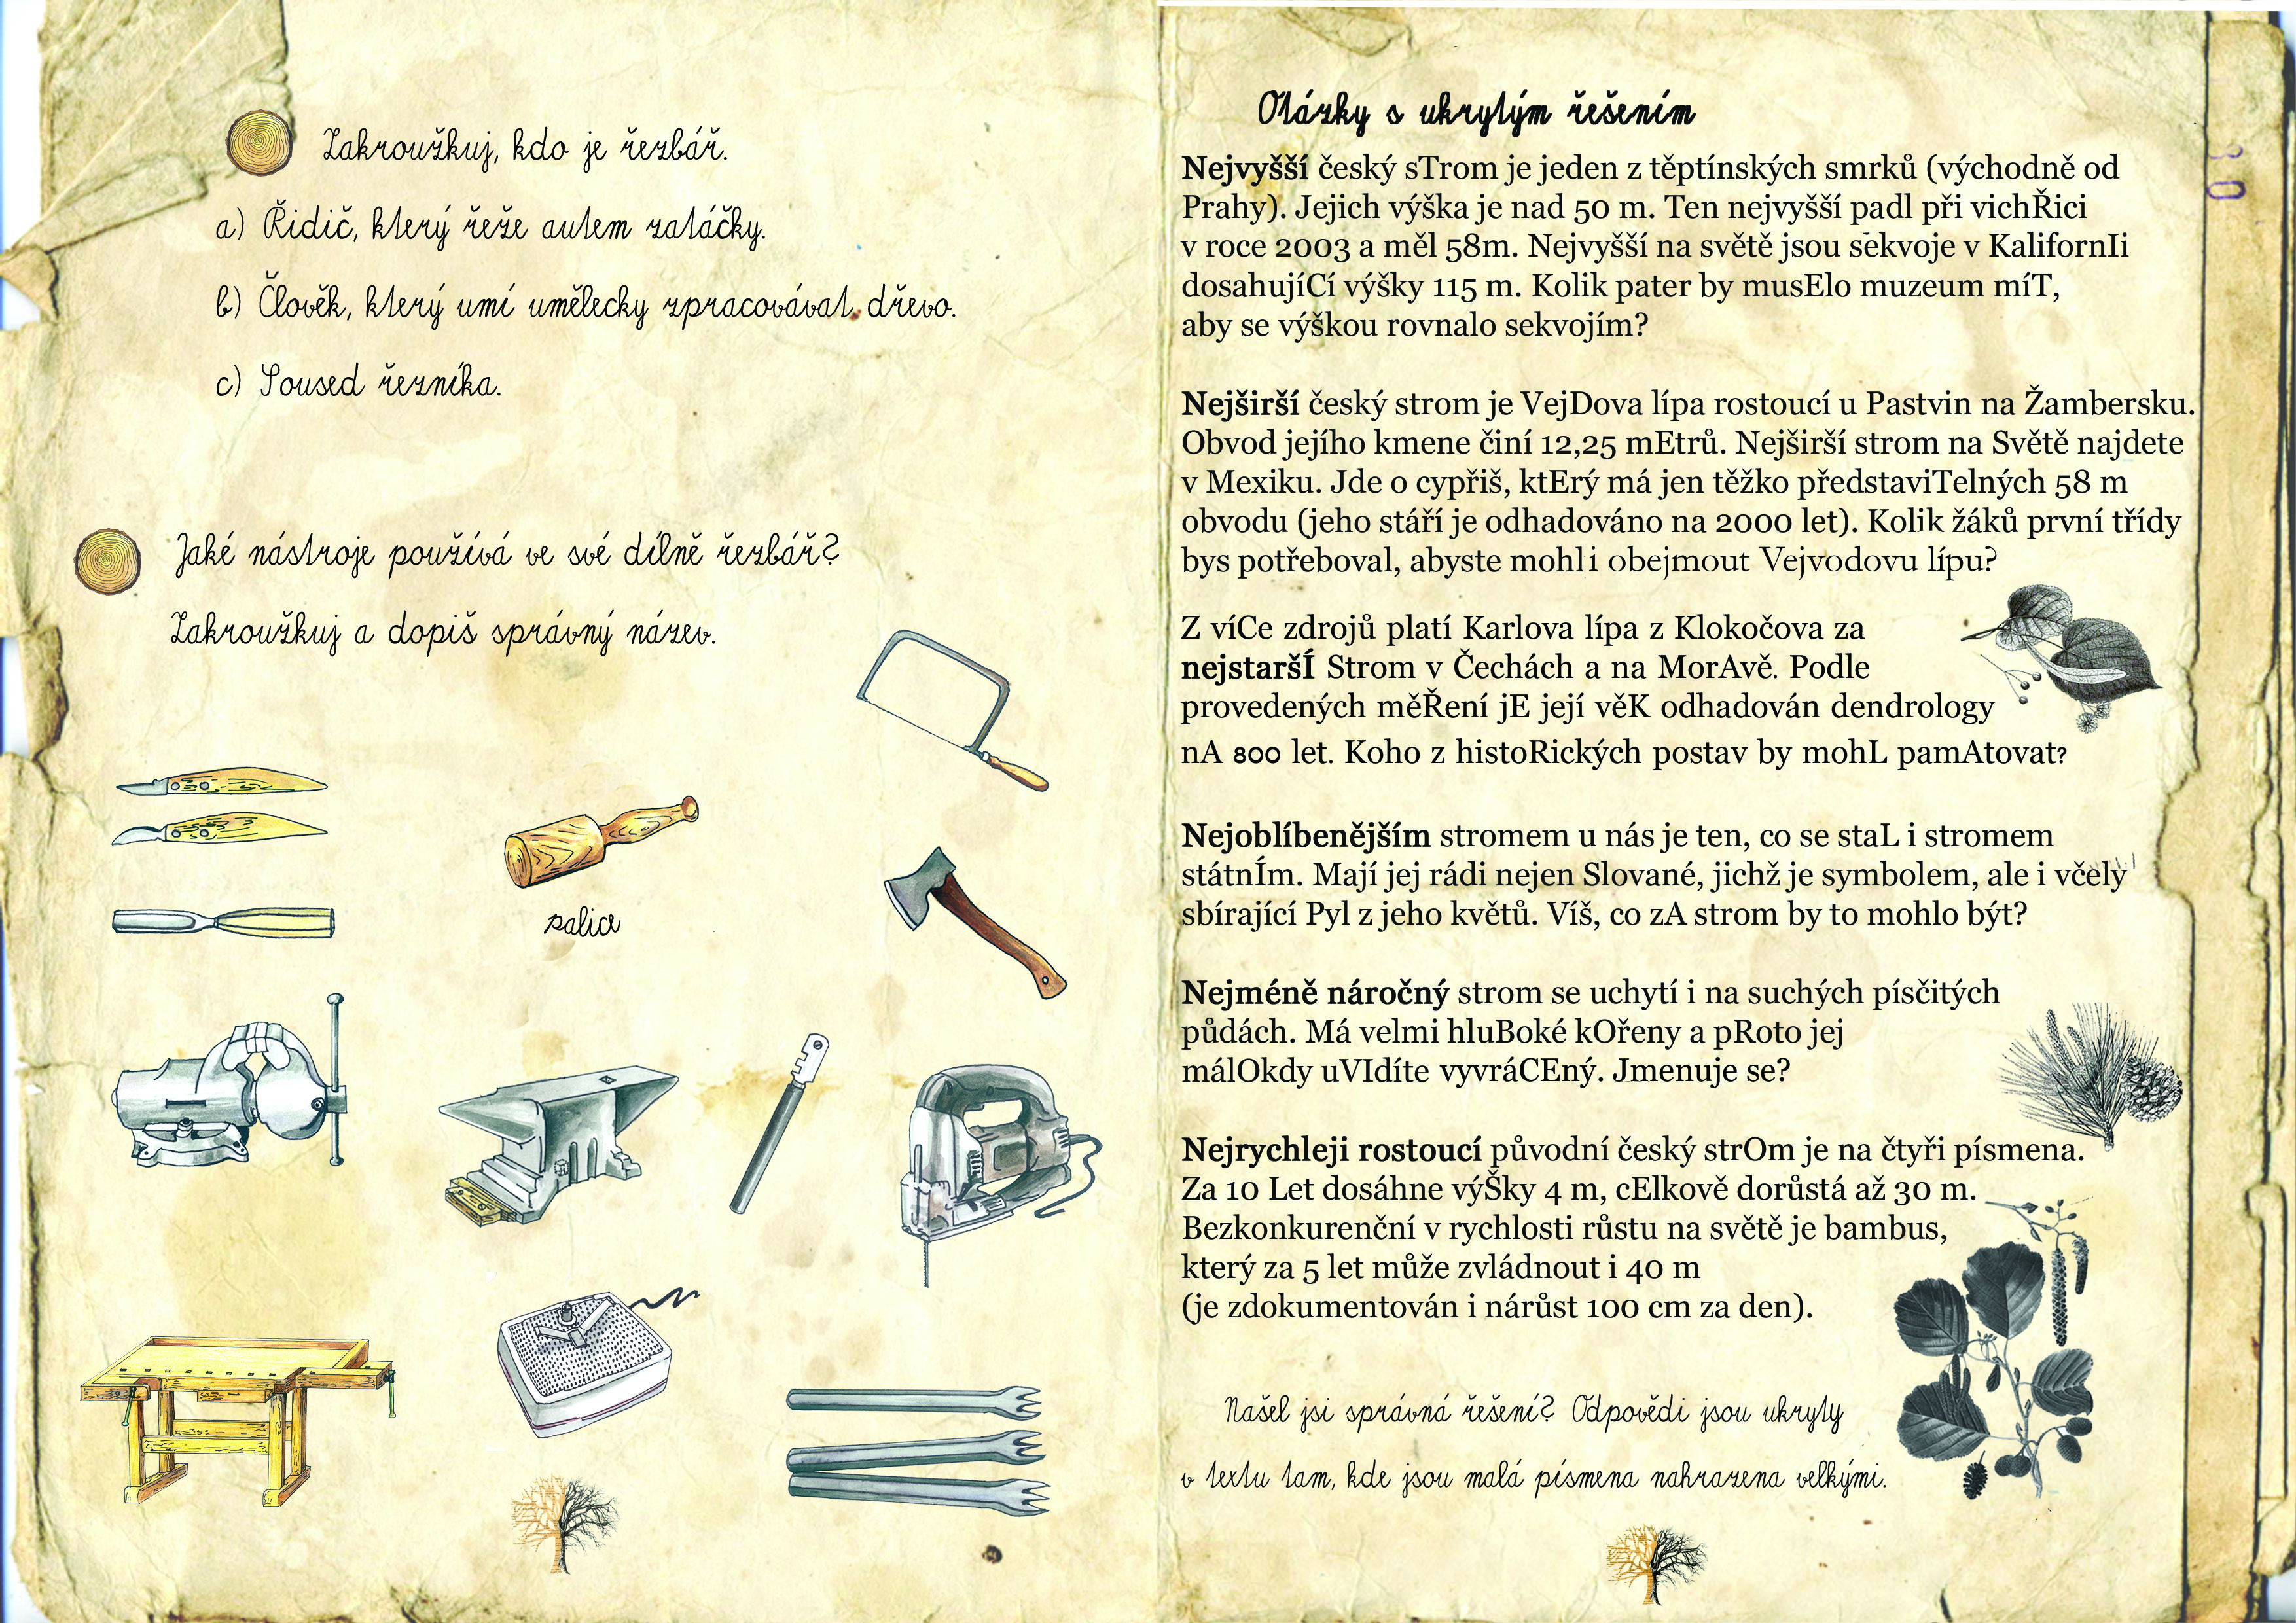 Zakroužkuj, kdo je řezbář.
a) Řidič, který řeže autem zatáčky.
b) Člověk, který umí umělecky zpracovávat dřevo.
c) Soused řezníka.
Jaké nástroje používá ve své dílně řezbář?
Zakroužkuj a dopiš správný název.
palice
Otázky s ukrytým řešením
Nejvyšší český sTrom je jeden z těptínských smrků (východně od
Prahy). Jejich výška je nad 50 m. Ten nejvyšší padl při vichŘici
v roce 2003 a měl 58m. Nejvyšší na světě jsou sekvoje v KalifornIi
dosahujíCí výšky 115 m. Kolik pater by musElo muzeum míT,
aby se výškou rovnalo sekvojím?
Nejširší český strom je VejDova lípa rostoucí u Pastvin na Žambersku.
Obvod jejího kmene činí 12,25 mEtrů. Nejširší strom na Světě najdete
v Mexiku. Jde o cypřiš, ktErý má jen těžko představiTelných 58 m
obvodu (jeho stáří je odhadováno na 2000 let). Kolik žáků první třídy
bys potřeboval, abyste mohli obejmout Vejvodovu lípu?
Z víCe zdrojů platí Karlova lípa z Klokočova za
nejstaršÍ Strom v Čechách a na MorAvě. Podle
provedených měŘení jE její věK odhadován dendrology
nA 800 let. Koho z histoRických postav by mohL pamAtovat?
Nejoblíbenějším stromem u nás je ten, co se staL i stromem
státnÍm. Mají jej rádi nejen Slované, jichž je symbolem, ale i včely
sbírající Pyl z jeho květů. Víš, co zA strom by to mohlo být?
Nejméně náročný strom se uchytí i na suchých písčitých
půdách. Má velmi hluBoké kOřeny a pRoto jej
málOkdy uVIdíte vyvráCEný. Jmenuje se?
Nejrychleji rostoucí původní český strOm je na čtyři písmena.
Za 10 Let dosáhne výŠky 4 m, cElkově dorůstá až 30 m.
Bezkonkurenční v rychlosti růstu na světě je bambus,
který za 5 let může zvládnout i 40 m
(je zdokumentován i nárůst 100 cm za den).
Našel jsi správná řešení? Odpovědi jsou ukryty
v textu tam, kde jsou malá písmena nahrazena velkými.
30